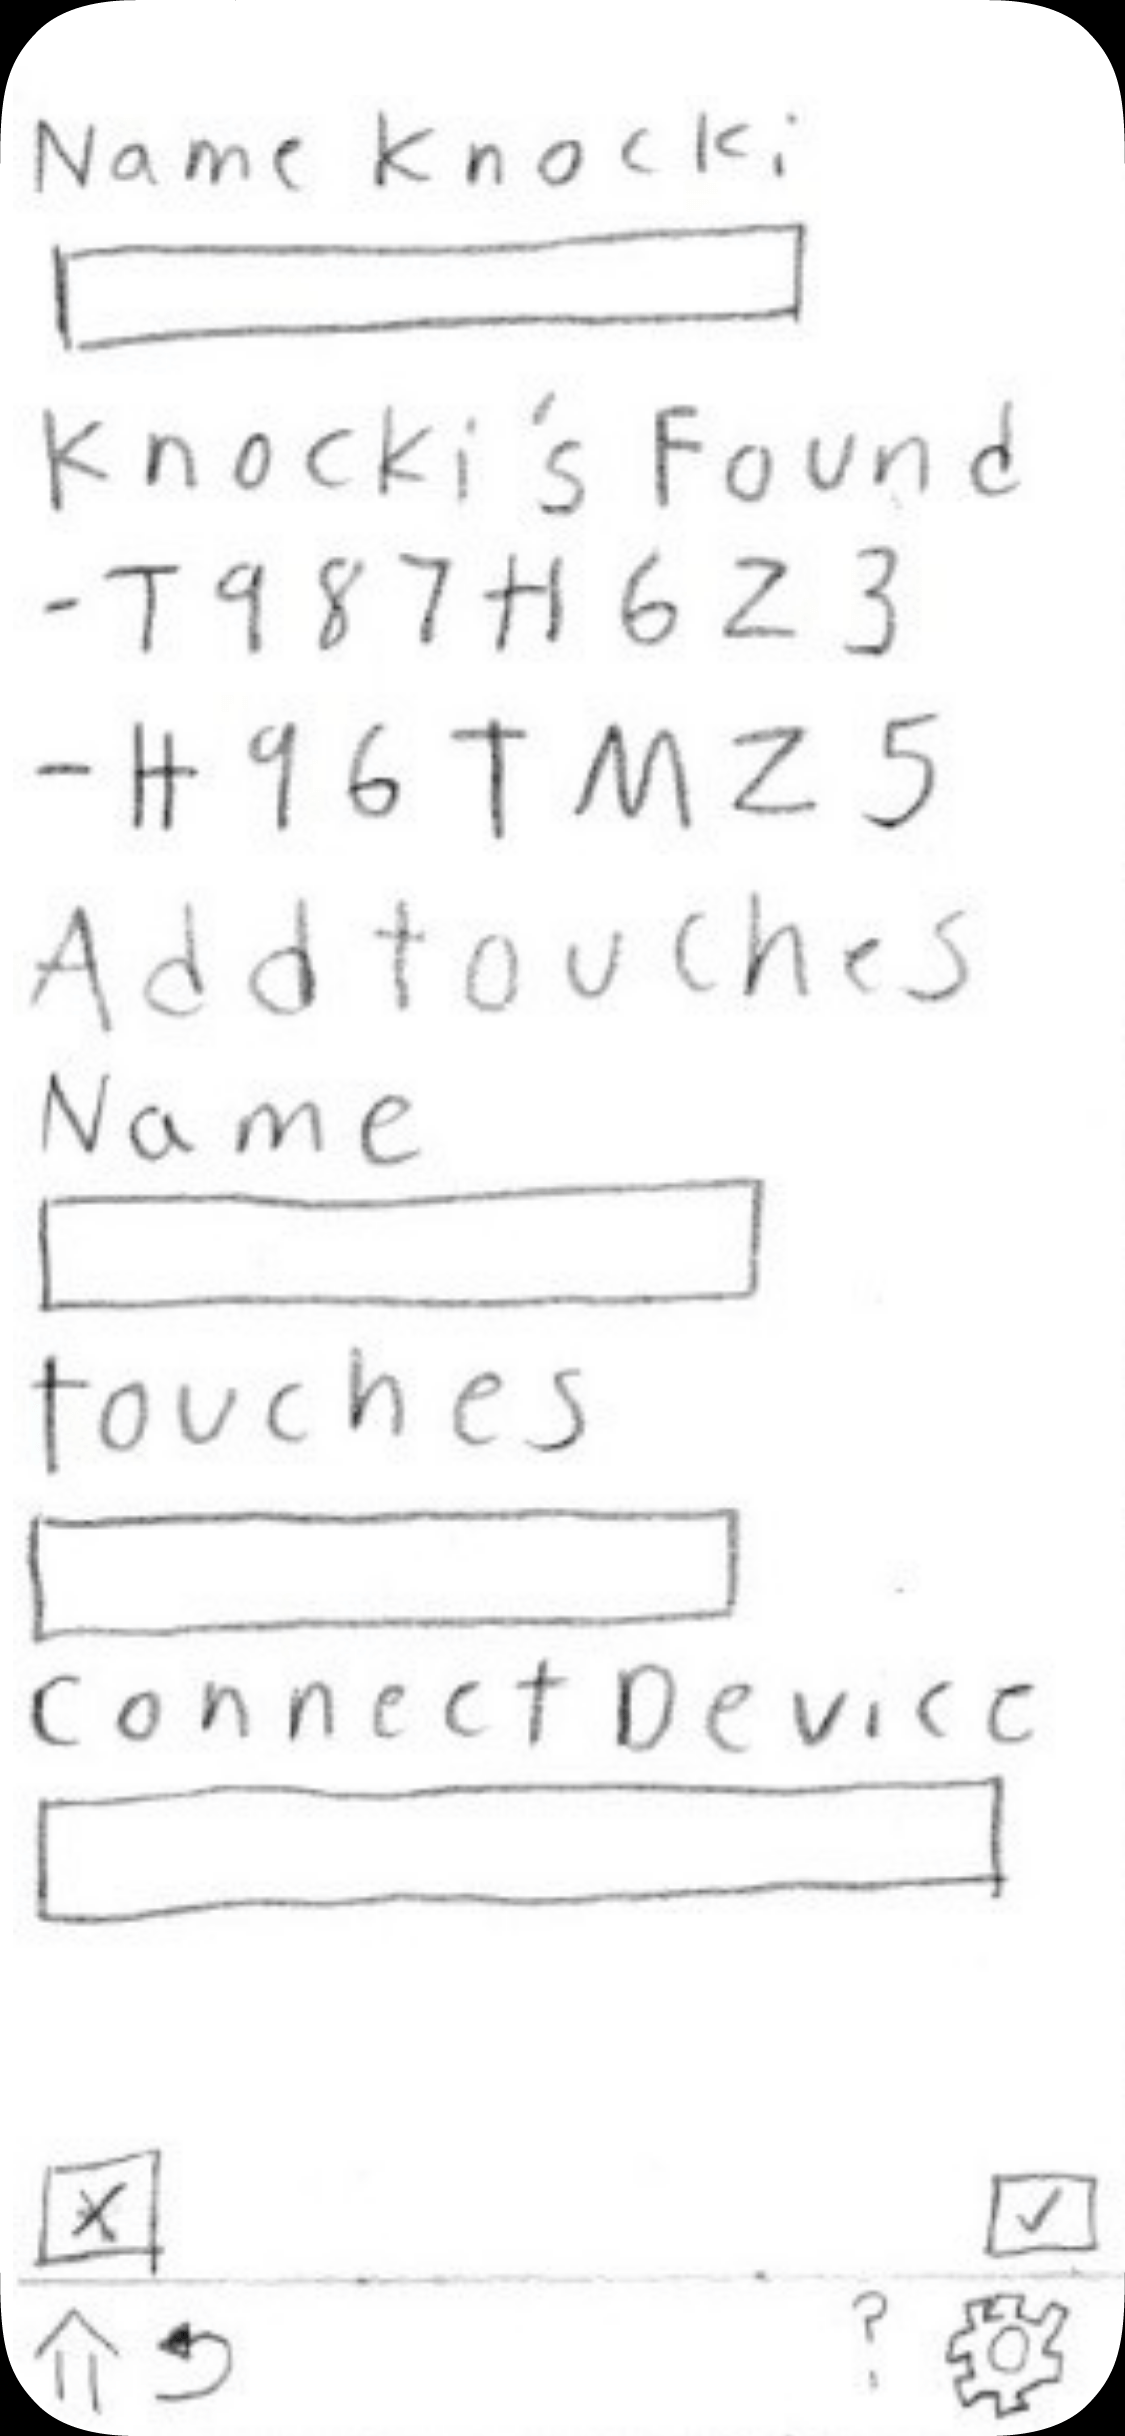 Name Knocki
Knocki's Found
-T987H6Z3
-H96TMZ5
Add touches
Name
touches
Connect Device
?